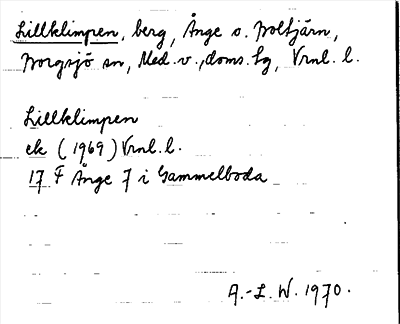 Lillklimpen, berg, Ånge o. Holtjärn,
Borgsjö sn, Med. v., doms. lg, Vrnl. l.
Lillklimpen
ek (1969) Vrnl. l.
17 F Ånge 7 i Gammelboda
A.-L. W. 1970.